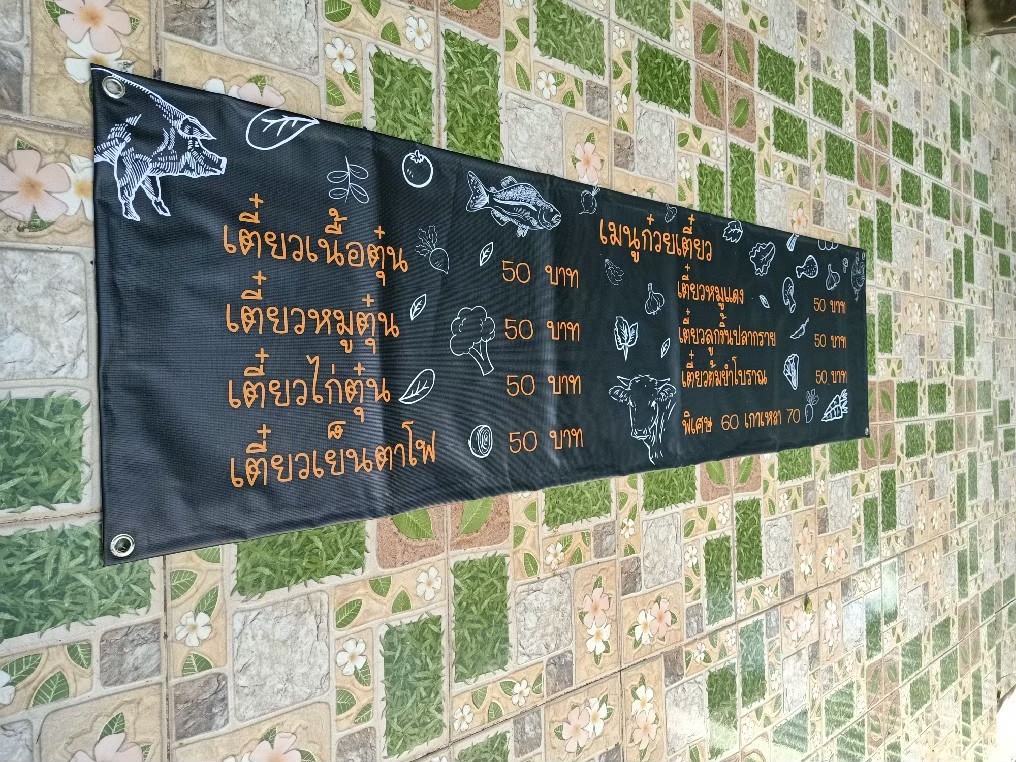 เมนูก๋วยเตี๋ยว
เตี๋ยวเนื้อตุ๋น 50 บาท
เตี๋ยวหมูตุ๋น 50 บาท
เตี๋ยวไก่ตุ๋น 50 บาท
เตี๋ยวเย็นตาโฟ 50 บาท
เตี๋ยวหมูแดง 50 บาท
เตี๋ยวลูกชิ้นปลากราย 50 บาท
เตี๋ยวต้มยำโบราณ 50 บาท
พิเศษ 60 เกาเหลา 70